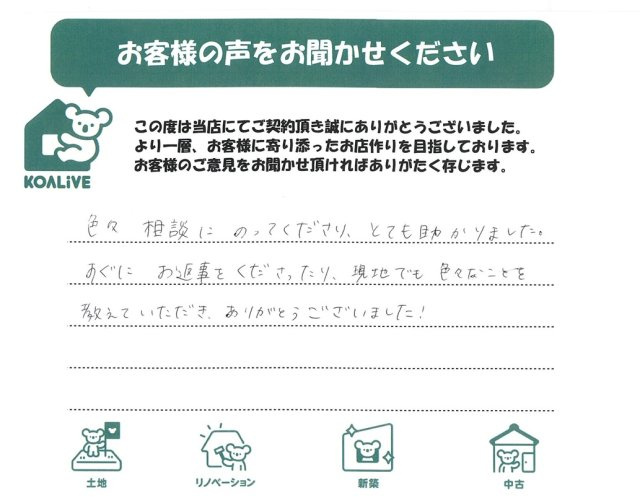 お客様の声をお聞かせください
この度は当店にてご契約頂き誠にありがとうございました。
より一層、お客様に寄り添ったお店作りを目指しております。
お客様のご意見をお聞かせ頂ければありがたく存じます。
KOALIVE
色々 相談に のってくださり、とても助かりました。
すぐに お返事をくださったり、現地でも 色々なことを
教えていただき、ありがとうございました!
土地
リノベーション
新築
中古